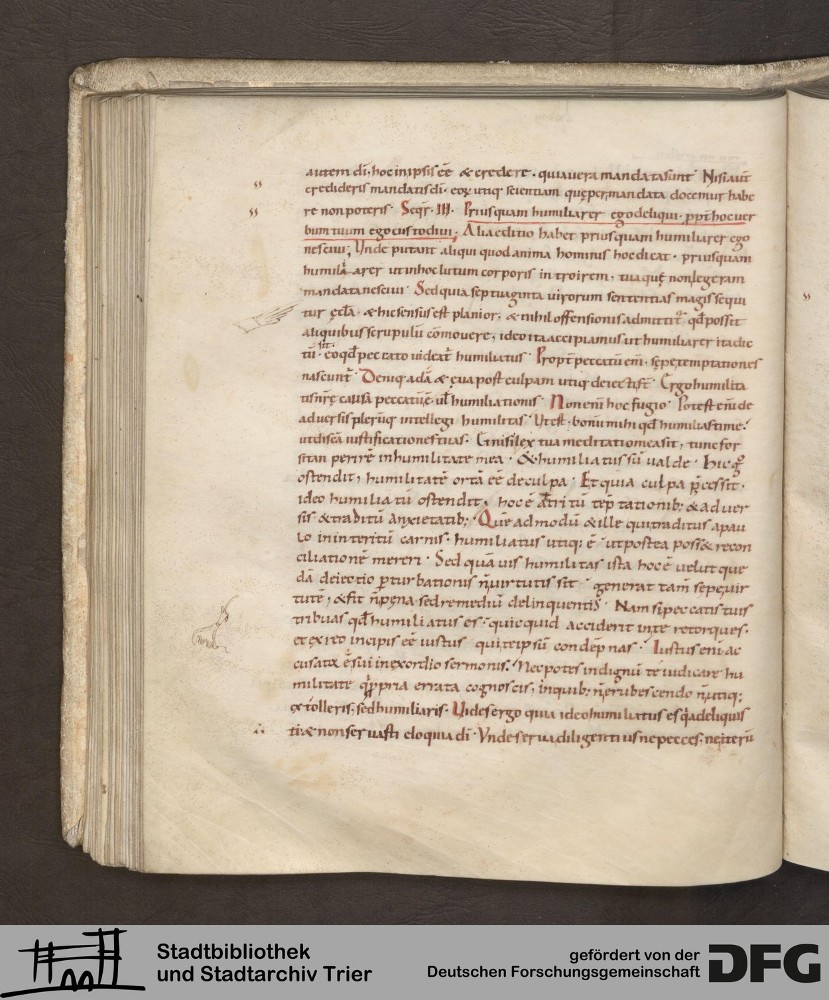 autem dī. hoc inipsis eē & credere. quia uera mandata sunt. Nisi aūt
credideris mandatis di. eoꝝ utiq; scientiam quę per mandata docemur habe
re non poteris. Seqr̄. III. Priusquam humiliarer ego deliqui. ppt̄ hoc uer
bum tuum ego custodiui; Alia editio habet priusquam humiliarer ego
nesciui; Unde putant aliqui quod anima hominis hoc dicat. priusquam
humiliarer ut in hoc lutum corporis introirem, tua quę non legeram
mandata nesciui. Sed quia septuaginta uirorum sententias magis sequi
tur ęccl̄a. & hic sensus est planior, & nihil offensionis admittit. qđ possit
aliquibus scrupulū cōmouere, ideo ita accipiamus ut humiliarer ita dic
tū sit. eo qđ peccato uideat̄ humiliatus. Propt̄ peccatū em̄. sępe temptationes
nascunt̄. Deniq; adā & ęua post culpam utiq; deiecti st̄. Ergo humilita
tis nr̄ę causā peccatū ē. ut̄ humiliationis. Non em̄ hoc fugio. Potest em̄ de
aduersis plerūq; intellegi humilitas. Ut est. bonū mihi qđ humiliasti me.
ut discā iustificationes tuas. Et nisi lex tua meditatio mea sit, tunc for
sitan perirē in humilitate mea. & humiliatus sū ualde. Hic g̊
ostendit, humilitatē ortā eē de culpa. Et quia culpa p̄cessit.
ideo humiliatū ostendit, hoc ē attritū tēptationib; & aduer
sis & traditū anxietatib; Quē ad modū & ille qui traditus a pau
lo in interitū carnis. humiliatus utiq; ē. ut postea poss& recon
ciliationē mereri. Sed quā uis humilitas ista hoc ē uelut que
dā deiectio pturbationis n̄ uirtutis sit. generat tam̄ sępe uir
tutē, & fit n̄ pęna sed remediū delinquentis. Nam si peccatis tuis
tribuas qđ humiliatus es. quicquid acciderit in te retorques.
et ex reo incipis eē iustus qui te ipsū condēpnas. Iustus eni ac
cusator ē sui in exordio sermonis. Nec potes indignū te iudicare hu
militate q̄ ppria errata cognoscis, in quib; n̄ erubescendo n̄ utiq;
extolleris, sed humiliaris. Uides ergo quia ideo humiliatus es q̄a deliquis
ti & non seruasti eloquia di. Vnde serua diligentius ne pecces. ne iterū
Stadtbibliothek
und Stadtarchiv Trier
gefördert von der
Deutschen Forschungsgemeinschaft
DFG